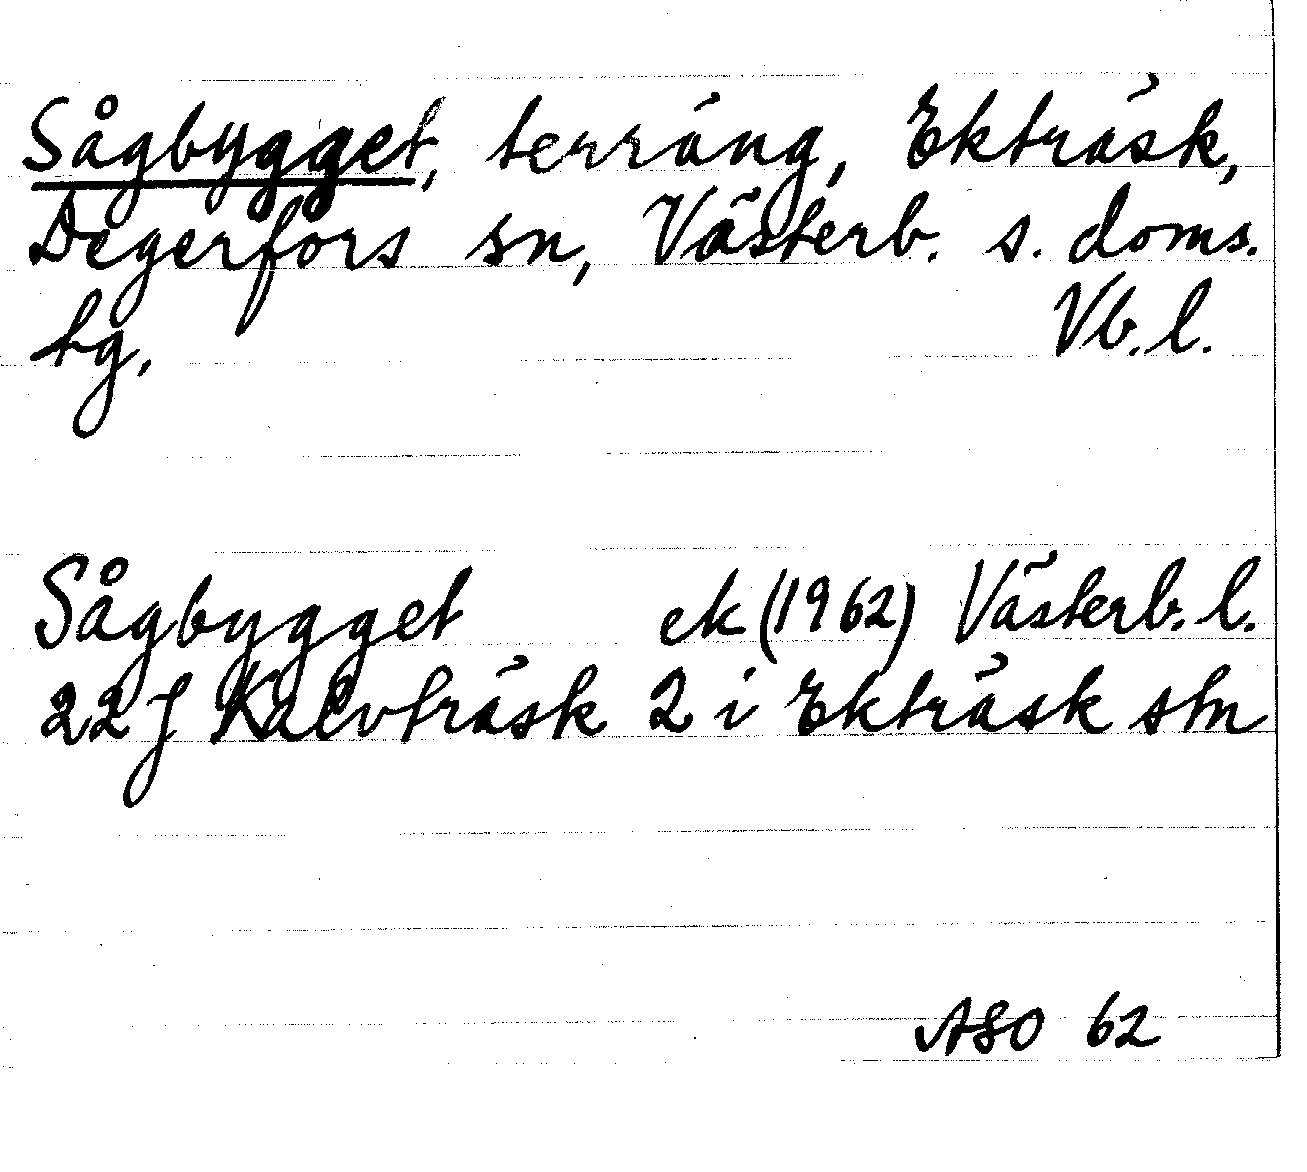 Sågbygget, terräng, Ekträsk,
Degerfors sn, Västerb. s. doms.
hg, Vb. l.
Sågbygget ek (1962) Västerb. l.
22 J Kalvträsk 2 i Ekträsk stn
ASO 62